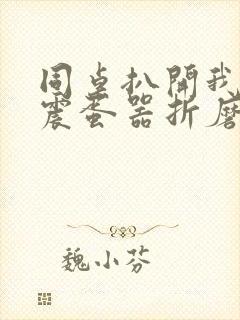 同桌扒開我
震蛋器折磨
魏小芬